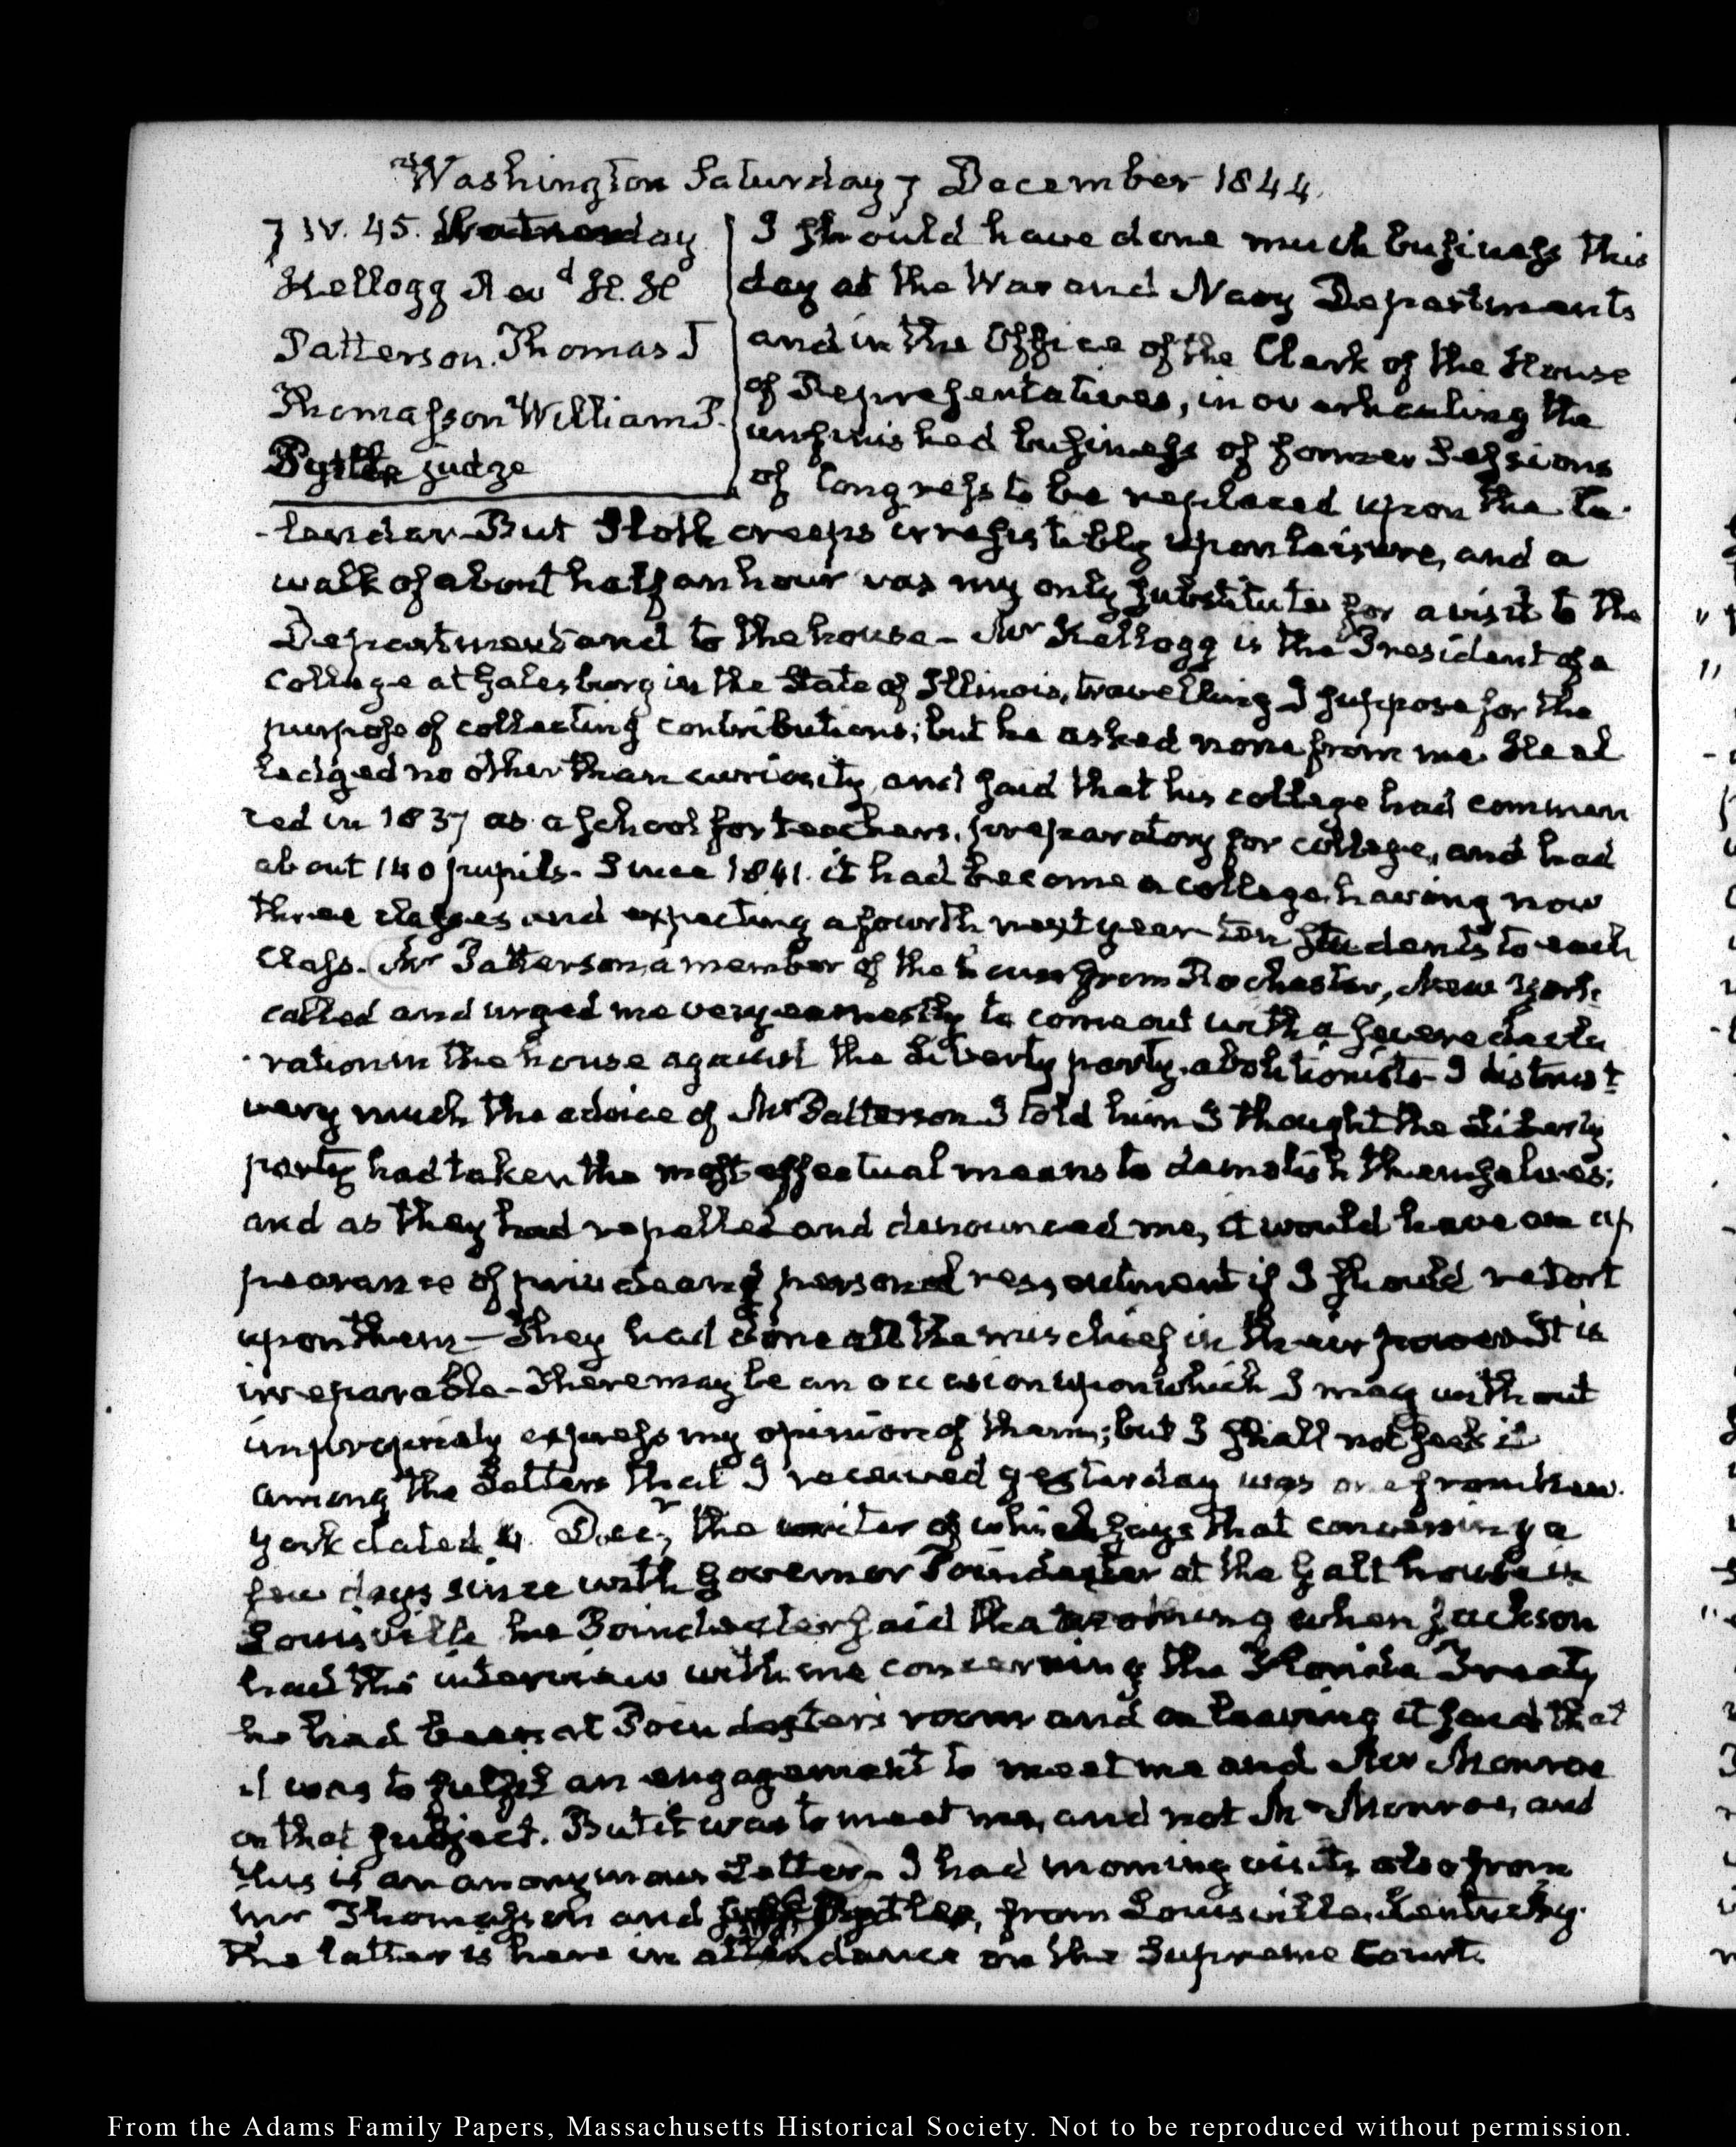 Washington Saturday 7 December 1844.
7 IV. 45. Saturday
Kellogg Revd. H. H
Patterson. Thomas J
Thomasson William P.
Pirtle judge
I should have done much business this
day at the War and Navy Departments
and in the Office of the Clerk of the House
of Representatives, in overhauling the
unfinished business of former Sessions
of Congress to be replaced upon the Ca-
-lendar. But Sloth creeps irresistibly upon leisure, and a
walk of about half an hour was my only substitute for a visit to the
Departments and to the house - Mr Kellogg is the President of a
College at Galesburg in the State of Illinois, travelling I suppose for the
purpose of collecting contributions; but he asked none from me. He al
ledged no other than curiosity, and said that his college had commen
ced in 1837 as a school for teachers, preparatory for college, and had
about 140 pupils. Since 1841. it had become a college, having now
three classes and expecting a fourth next year ten students to each
Class. Mr Patterson, a member of the house from Rochester, New York
called and urged me very earnestly to come out with a severe decla
-ration in the house against the Liberty party, abolitionists - I distrust
very much the advice of Mr Patterson. I told him I thought the Liberty
party had taken the most effectual means to demolish themselves;
and as they had repelled and denounced me, it would have an ap
pearance of and personal resentment if I should retort
upon them - They had done all the mischief in their power. It is
irreparable - There may be an occasion upon which I may without
impropriety express my opinion of them; but I shall not seek it
among the Letters that I received yesterday was one from New-
York dated 4. Decr, the writer of which says that conversing a
few days since with Governor Poindexter at the Galt house in
Louisville he Poindexter said the morning when Jackson
had the interview with me concerning the Florida Treaty
he had been at Poindexter's room and on leaving it said that
it was to fulfil an engagement to meet me and Mr Monroe
on that subject. But it was to meet me, and not Mr Monroe, and
this is an anonymous Letter - I had morning visits also from
Mr Thomasson and Judge Pirtle, from Louisville, Kentucky.
The latter is here in attendance on the Supreme Court.
From the Adams Family Papers, Massachusetts Historical Society. Not to be reproduced without permission.